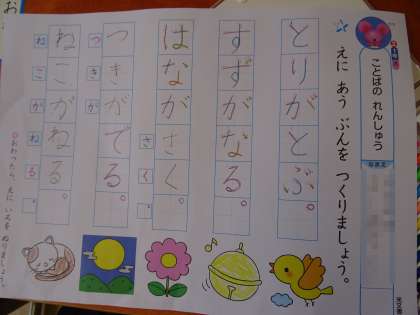 ことばの れんしゅう
なまえ
えに あう ぶんを つくりましょう。
とりがとぶ。
すずがなる。
はながさく。
さ
く
つきがでる。
つ
き
が
ねこがねる。
ね
こ
が
ね
る
。
○おわったら、えに いろを ぬりましょう。